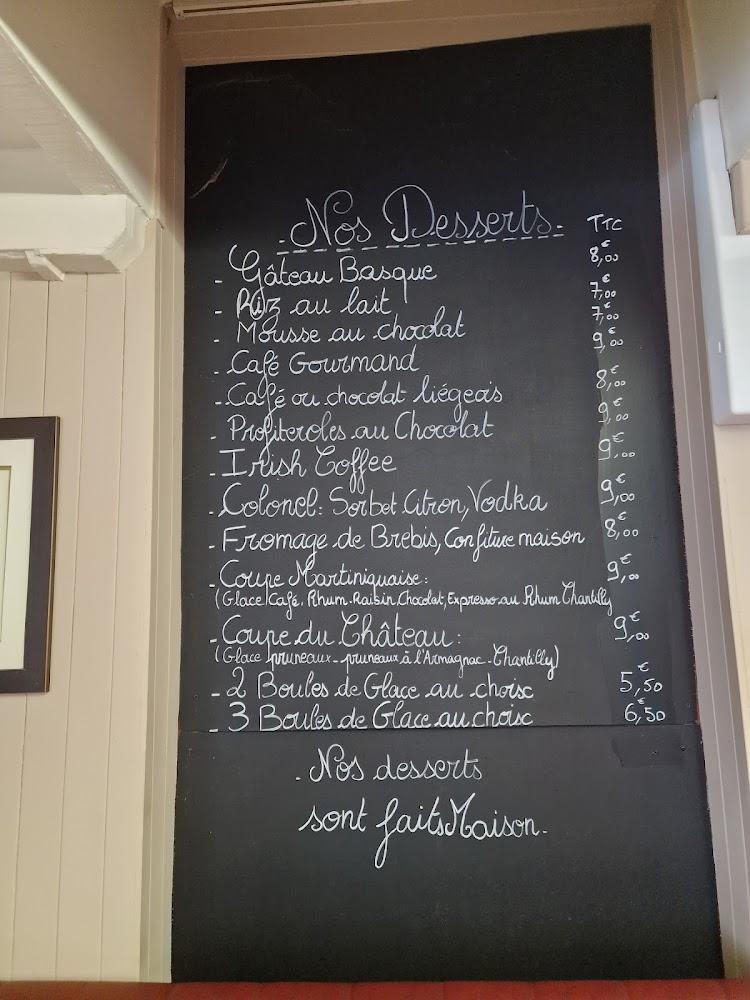 - Nos Desserts - TTC
- Gâteau Basque 8,00€
- Riz au lait 7,00€
- Mousse au chocolat 7,00€
- Café Gourmand 9,00€
- Café ou chocolat liégeois 8,00€
- Profiteroles au Chocolat 9,00€
- Irish Coffee 9,00€
- Colonel: Sorbet Citron, Vodka 9,00€
- Fromage de Brebis, Confiture maison 8,00€
- Coupe Martiniquaise: 9,00€
(Glace Café, Rhum-Raisin, Chocolat, Expresso au Rhum Chantilly
- Coupe du Château: 9,00€
(Glace pruneaux - pruneaux à l'Armagnac - Chantilly)
- 2 Boules de Glace au choix 5,50€
- 3 Boules de Glace au choix 6,50€
. Nos desserts
sont faits Maison.